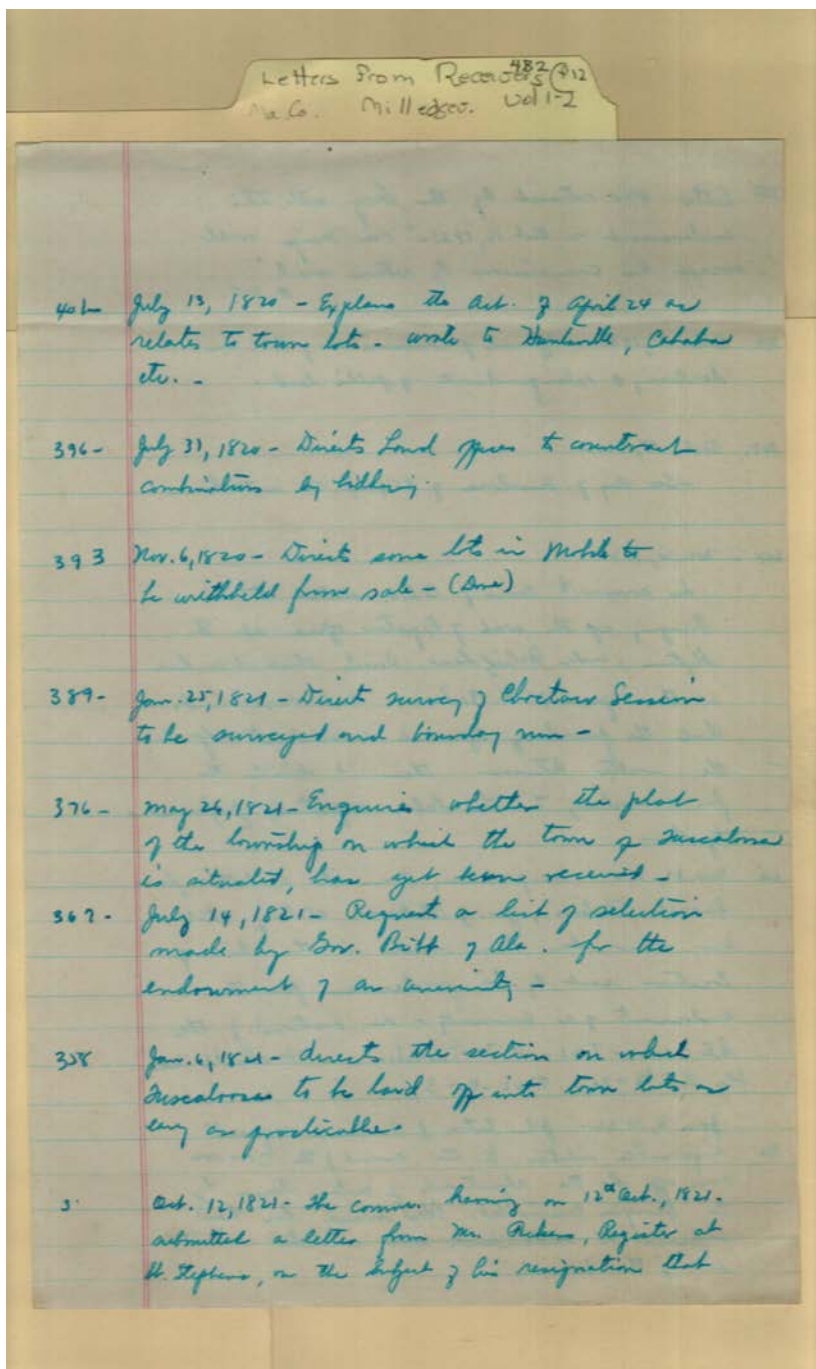 Letters From Receivers 482 12
Co. Milledgev. Vol 1-2
401- July 13, 1820 - Explains the Act. of April 24 as
relates to town lots - wrote to Huntsville, Cahaba
etc. -
396- July 31, 1820 - Directs Land offices to counteract
combinations by bidding.
393 Nov. 6, 1820 - Directs some lots in Mobile to
be withheld from sale - (Done)
389- Jan. 25, 1821 - Direct survey of Choctaw Session
to be surveyed and boundary run -
376- May 26, 1821 - Enquires whether the plat
of the township on which the town of Tuscaloosa
is situated, has yet been received -
367- July 14, 1821 - Request a list of selection
made by Gov. Bibb of Ala. for the
endowment of an university -
358 Jan. 6, 1821 - directs the section on which
Tuscaloosa to be laid off into town lots as
early as practicable.
Oct. 12, 1821 - The comm. having on 12th Oct., 1821 -
submitted a letter from Mr. Pickens, Register at
St. Stephens, on the subject of his resignation that